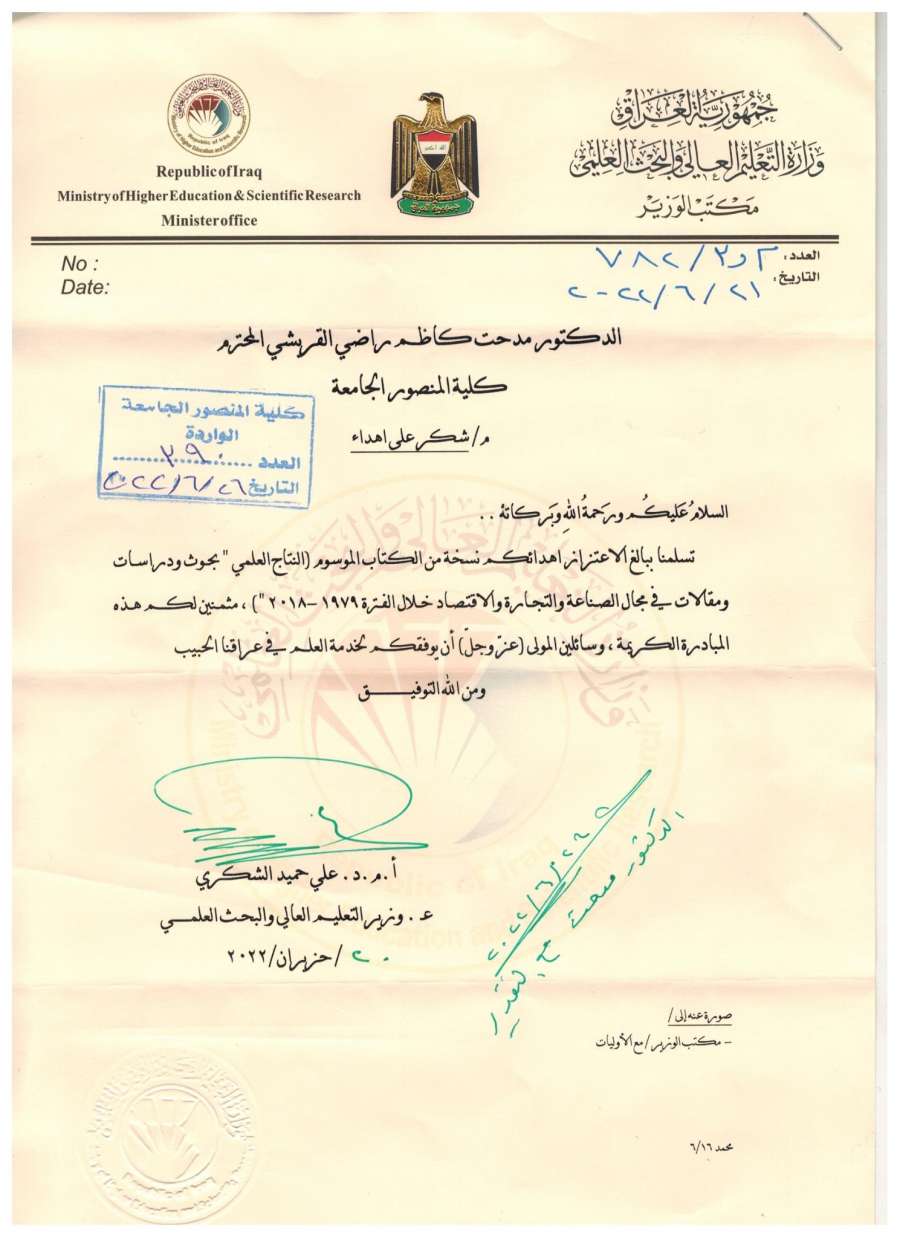 جمهورية العراق
وزارة التعليم العالي والبحث العلمي
مكتب الوزير
Republic of Iraq
Ministry of Higher Education & Scientific Research
Minister office
الله أكبر
جمهورية العراق
No :
Date:
العدد: م و٣/ ٧٨٢
التاريخ: ٢٠٢٢/٦/٢١
الدكتور مدحت كاظم راضي القريشي المحترم
كلية المنصور الجامعة
م/ شكر على اهداء
كلية المنصور الجامعة
الواردة
العدد ٣٩٠
التاريخ ٢٠٢٢/٦/٢٦
السلامُ عَليكُم ورَحمةُ اللهِ وبَركاتهُ ..
تسلمنا ببالغ الاعتزاز اهدائكم نسخة من الكتاب الموسوم (النتاج العلمي " بحوث ودراسات
ومقالات في مجال الصناعة والتجارة والاقتصاد خلال الفترة ١٩٧٩ –٢٠١٨ ") ، مثمنين لكم هذه
المبادرة الكريمة ، وسائلين المولى (عزّ وجلّ) أن يوفقكم لخدمة العلم في عراقنا الحبيب
ومن الله التوفيـــــق
أ.م.د. علي حميد الشكري
ع. وزير التعليم العالي والبحث العلمي
٢٠ /حزيران/٢٠٢٢
الدكتور مدحت مع التقدير
٢٠٢٢/٦/٢٦
صورة عنه إلى/
– مكتب الوزير/ مع الأوليات
محمد ٦/١٦